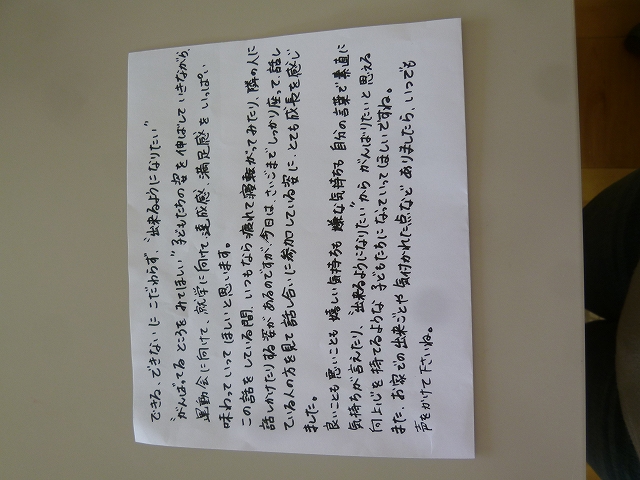 できる、できない にこだわらず、"出来るようになりたい"
"がんばってるところをみてほしい" 子どもたちの姿を伸ばしていきながら、
運動会に向けて、就学に向けて、達成感、満足感をいっぱい
味わっていってほしいと思います。
この話をしている間、いつもなら疲れて寝転がってみたり、隣の人に
話しかけたりする姿があるのですが、今日は、さいごまでしっかり座って、話し
ている人の方を見て話し合いに参加している姿に、とても成長を感じ
ました。
良いことも悪いことも嬉しい気持ちも嫌な気持ちも自分の言葉で素直に
気持ちが言えたり、"出来るようになりたい"からがんばりたいと思える
向上心を持てるような子どもたちになっていってほしいですね。
また、お家での出来ごとや気付かれた点などありましたら、いつでも
声をかけて下さいね。